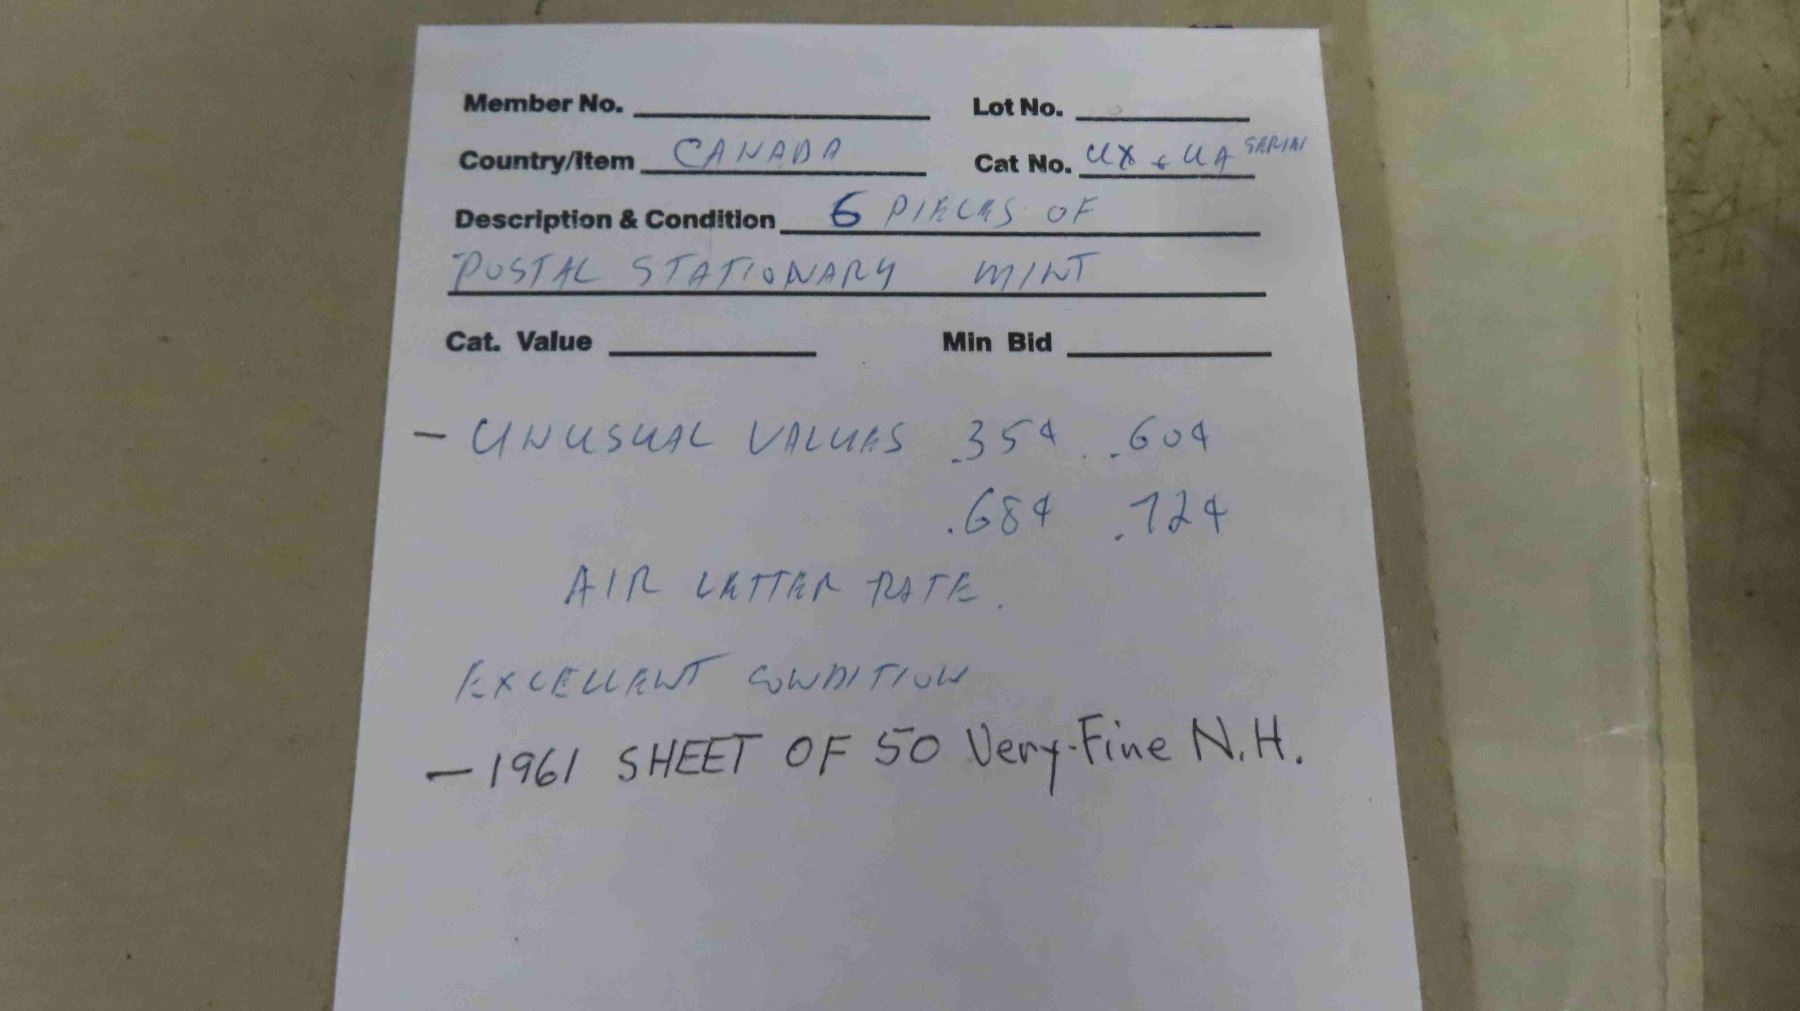 Member No. Lot No.
Country/Item CANADA Cat No. UX & UA SERIES
Description & Condition 6 PIECES OF
POSTAL STATIONARY MINT
Cat. Value Min Bid
- UNUSUAL VALUES .35¢ .60¢
.68¢ .72¢
AIR LETTER RATE.
EXCELLENT CONDITION
- 1961 SHEET OF 50 Very-Fine N.H.